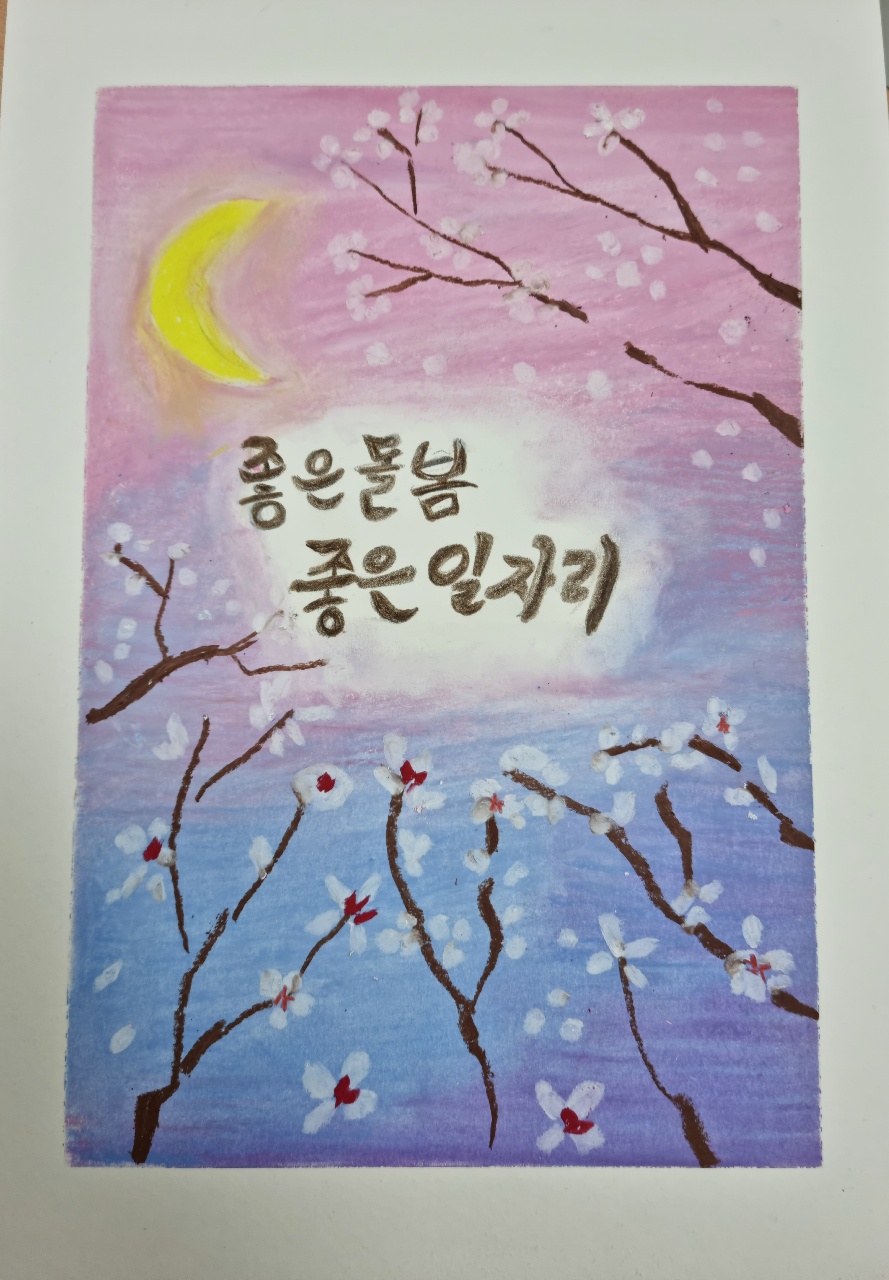 좋은돌봄
좋은일자리